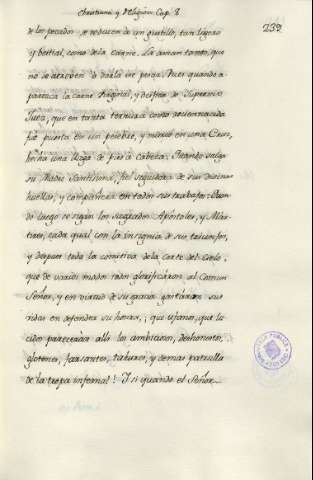 Christiano y Religion. Cap. 8
239
de los pecados, se reducen de un gustillo, tan ligero
y bestial, como de la carne. La aman tanto, que
no se atreven à darla un pesar. Pues quando a
parezca la carne Original, y destroz de Supremo
Juez, que en tanta ternura como recien nacida
fué puesta en un pesebre, y murió en una Cruz,
hecho una llaga de pies à cabeza. Quando salga
su Madre Santisima, fiel seguidora de sus divinas
huellas, y compañera en todos sus trabajos: Quan
do luego se sigan los sagrados Apóstoles, y Már
tires, cada qual con la insignia de sus triunfos,
y despues toda la comitiva de la Corte del Cielo,
que de varios modos todos glorificáron al Comun
Señor, y en virtud de su gracia gastáron sus
vidas en defender su honra, ¡que ufanos, que lu
cidos pareceran alli los ambiciosos, deshonestos,
glotones, farsantes, tahures, y demas patrulla
de la tropa infernal! Y si quando el Señor